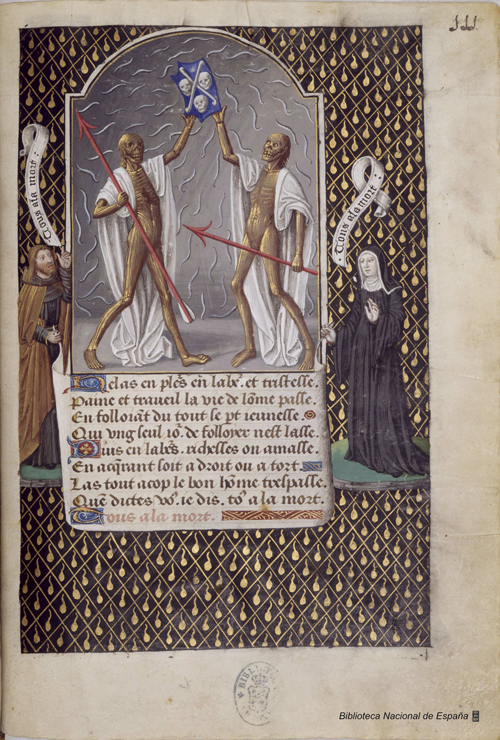 Tous ala mort :
Tous ala mort :
Helas en plēs en labeˢ. et tristesse.
Paine et traueil la vie de lōme passe.
En folloiāt du tout se pt ieunesse.
Qui vng seul ioˢ. de folloyer nest lasse.
Puis en labēs. richesses on amasse.
En acq̄rant soit a droit ou a tort.
Las tout acop le bon hōme trespasse.
Quē dictes voˢ. ie dis. toˢ a la mort.
Tous ala mort.
Biblioteca Nacional de España